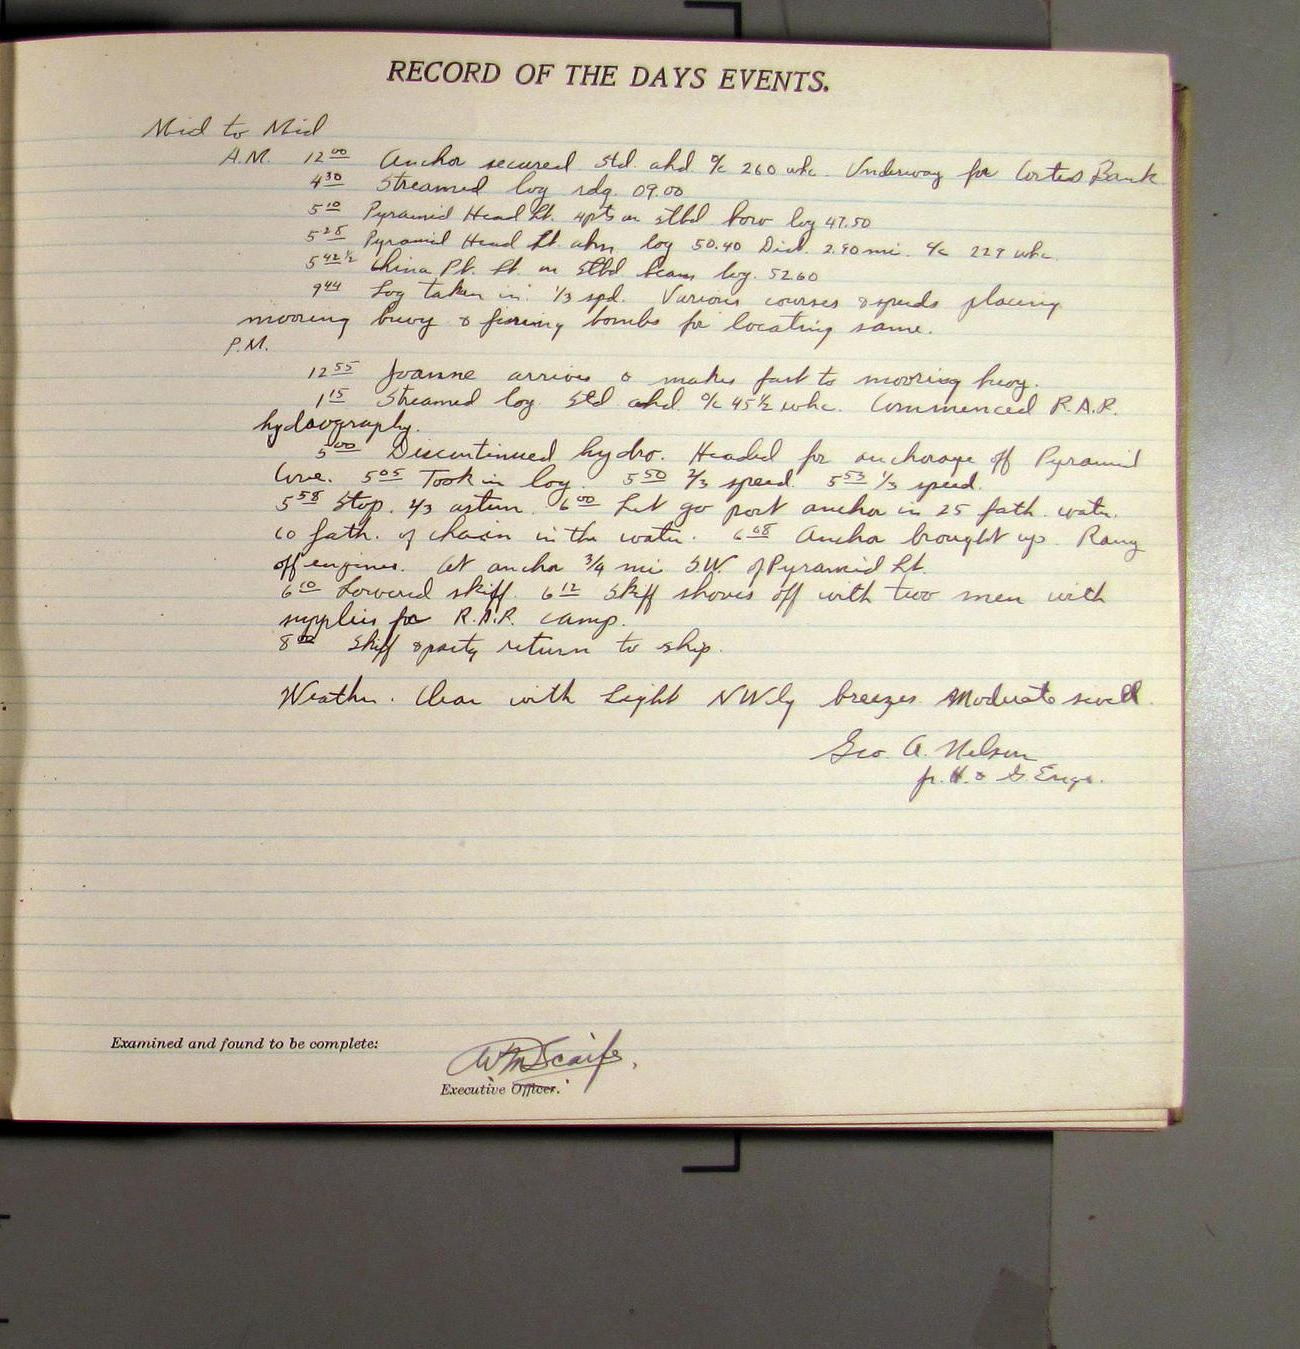 RECORD OF THE DAYS EVENTS.
Mid to Mid
A.M. 12 00 Anchor secured Std. ahd % 260 whc. Underway for Cortes Bank
4 30 Streamed log rdg. 09.00
5 10 Pyramid Head Lt. 4pts on stbd bow log 47.50
5 28 Pyramid Head Lt. abm log 50.40 Dist. 2.90 mi. c/c 229 whc.
5 42 1/2 China Pt. Lt. on Stbd beam log. 52.60
9 44 Log taken in. 1/3 spd. Various courses & speeds placing
mooring buoy & firing bombs for locating same.
P.M.
12 55 Joanne arrives & makes fast to mooring buoy.
1 15 Streamed log Std ahd. % 45 1/2 whc. Commenced R.A.R.
hydrography.
5 00 Discontinued hydro. Headed for anchorage off Pyramid
Cove. 5 05 Took in log. 5 50 2/3 speed. 5 53 1/3 speed.
5 58 Stop. 2/3 astern. 6 00 Let go port anchor in 25 fath. water.
60 fath. of chain in the water. 6 08 Anchor brought up. Rang
off engines. At anchor 3/4 mi. S.W. of Pyramid Lt.
6 10 Lowered skiff. 6 12 Skiff shoves off with two men with
supplies for R.A.R. camp.
8 00 Skiff & party return to ship.
Weather. Clear with Light NWly breezes Moderate swell.
Geo. A. Nelson
jr. H. & G. Engr.
Examined and found to be complete:
WM Scaife.
Executive Officer.